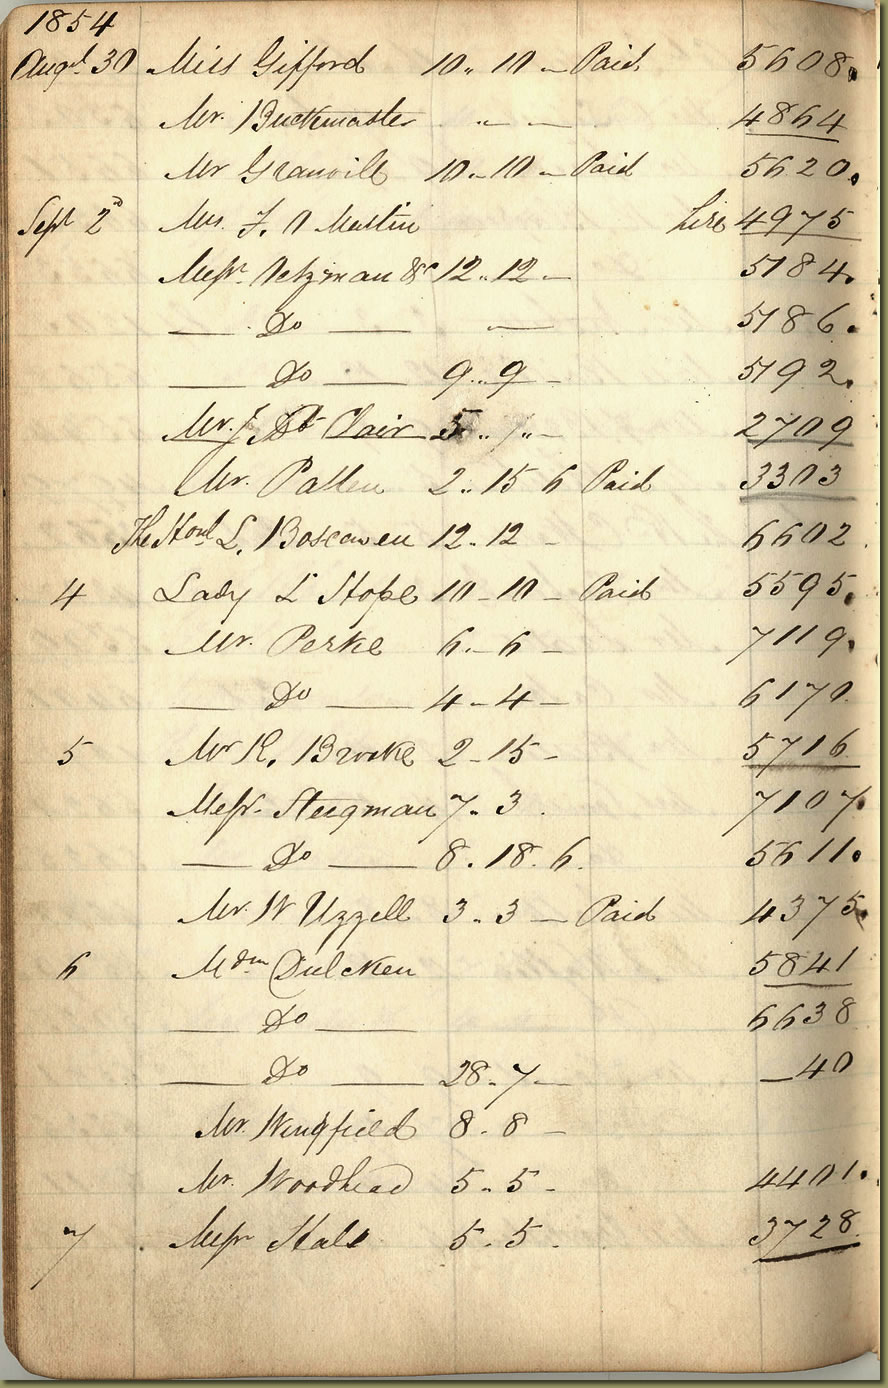 1854
Augt 30 Miss Gifford 10 .. 10 - Paid 5608.
Mr. Buckmaster .. - 4864
Mr Granvill 10 - 10 - Paid 5620.
Sept 2d Mr. F. Martin Hire 4975
Messrs &c 12 .. 12 - 5184.
— Do — - 5186.
— Do — 9 .. 9 - 5192.
Mr. J. St Clair 5 .. " .. - 2709
Mr. Patten 2 .. 15 6 Paid 3303
The Honl L. Boscawen 12 .. 12 - 6602
4 Lady L Hope 10 - 10 - Paid 5595.
Mr. Perke 6 .. 6 - 7119.
— Do — 4 - 4 - 6170.
5 Mr R. Brooke 2 - 15 - 5716
Messrs Steegman 7 .. 3 . 7107.
— Do — 8 . 18 . 6. 5611.
Mr. W Uzzell 3 .. 3 — Paid 4375.
6 Mdm Dulcken 5841
— Do — 6638
— Do — 28 - 7 — — 40
Mr. Wingfield 8 . 8 -
Mr. Woodhead 5 .. 5 - 4401.
7 Messrs Hale 5 . 5 . 3728.